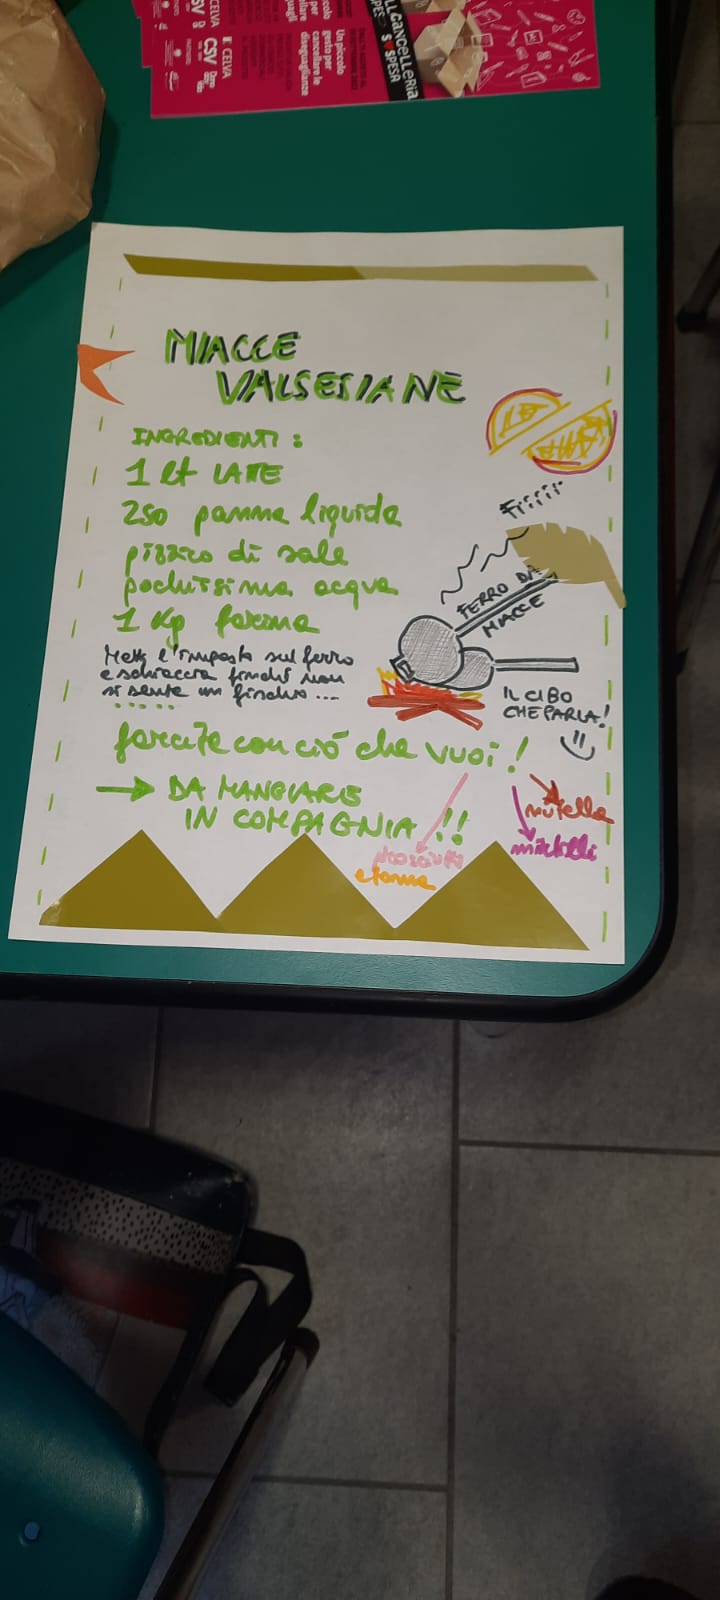 CELVA
CSV
CELVA
CSV
Un piccolo
gesto per
cancellare le
diseguaglianze
CANCELLERIA
SOSPESA
MIACCE
VALSESIANE
INGREDIENTI:
1 lt LATTE
250 panna liquida
pizzico di sale
pochissima acqua
1 Kg farina
Metti l'impasto sul ferro
e schiaccia finché non
si sente un fischio...
farcite con ciò che vuoi!
→ DA MANGIARE
IN COMPAGNIA!!
Fiiiii
FERRO DA
MIACCE
IL CIBO
CHE PARLA!
nutella
mirtilli
prosciutto
e toma